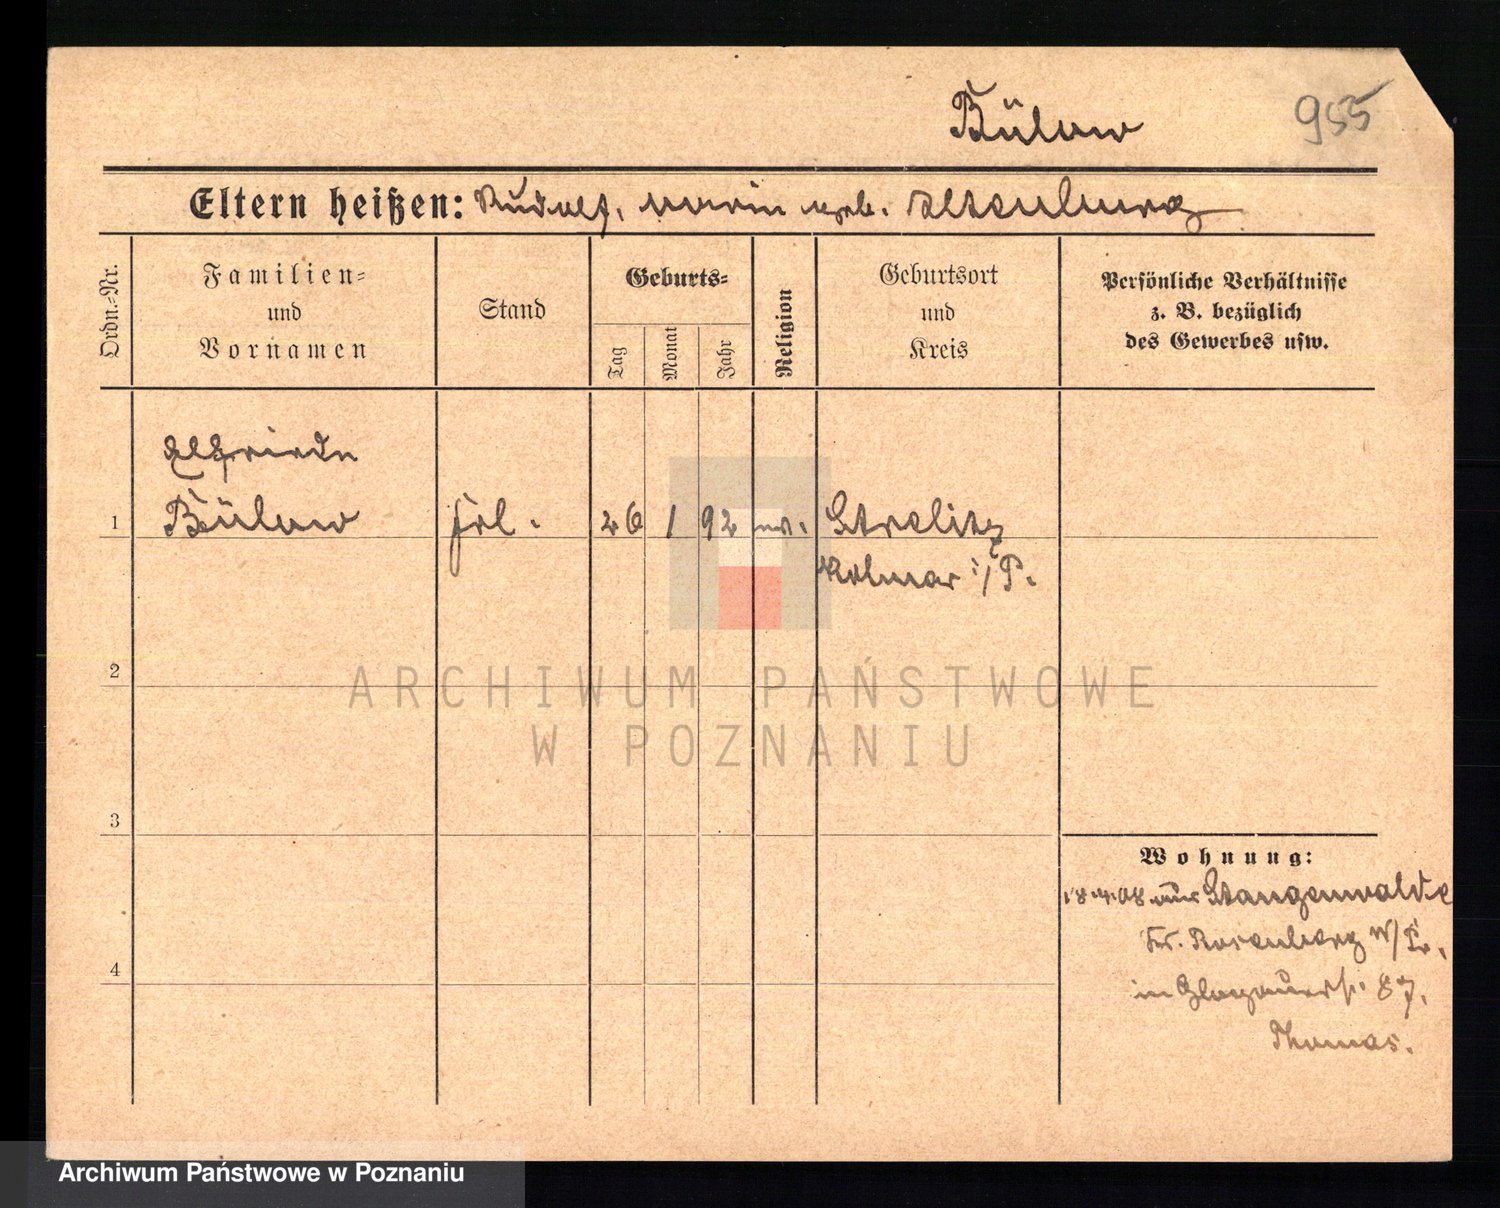 Bülow
955
Eltern heißen: Rudolf, Marie geb. Altenburg
Ordn.=Nr.
Familien=
und
Vornamen
Stand
Geburts=
Tag
Monat
Jahr
Religion
Geburtsort
und
Kreis
Persönliche Verhältnisse
z. B. bezüglich
des Gewerbes usw.
Elfriede
1 Bülow Frl. 26 1 92 ev. Strelitz
Kolmar i/P.
2
3
4
Wohnung:
18.4.08 aus Stangenwalde
Kr. Rosenberg W/Pr.
in Glogauerstr. 87.
Thomas.
ARCHIWUM PAŃSTWOWE
W POZNANIU
Archiwum Państwowe w Poznaniu